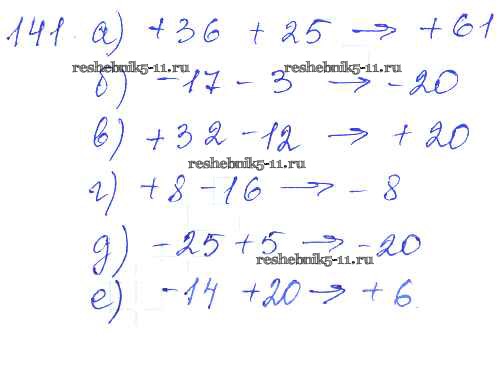 141. а) +36 + 25 → +61
reshebnik5-11.ru reshebnik5-11.ru
б) -17 - 3 → -20
в) +32 - 12 → +20
reshebnik5-11.ru
г) +8 - 16 → - 8
д) -25 + 5 → -20
reshebnik5-11.ru
е) -14 + 20 → + 6